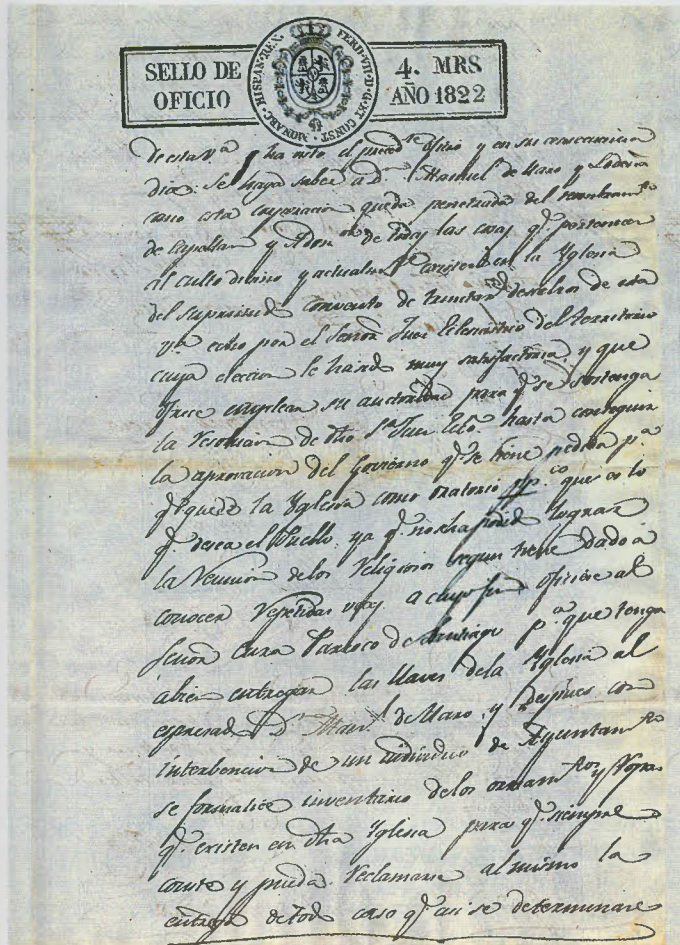 SELLO DE
OFICIO
HISPAN. REX. FERD. VII. D. G. ET CONST. MONARC.
4. MRS
AÑO 1822
de esta Vª ha visto el preced.te oficio y en su consecuencia
dixo: Se haga saber a D.n Manuel de Haro y
como esta corporacion queda penetrada del nombram.to
de Capellan y Adm.or de todas las cosas q.e pertenecen
al culto divino y actualm.te existen en la Yglesia
del Suprimido convento de Trinitar.s descalzos de esta
Vª echo por el Señor Juez Eclesiastico del territorio
cuya eleccion le ha sido muy satisfactoria, y que
ofrece emplear su autoridad para q.e se sostenga
la resolucion de dho S.r Juez Ecco. hasta conseguir
la aprovacion del Govierno q.e se tiene pedida p.a
q.e quede la Yglesia como oratorio pp.co que es lo
q.e desea el Pueblo, ya q.e no se ha podido lograr
la Reunion de los Religiosos segun tiene dado a
conocer repetidas veces, a cuyo fin oficiese al
Señor Cura Parroco de Santiago p.a que tenga
abien entregar las llaves de la Yglesia al
espresado D.n Man.l de Haro, y despues con
interbencion de un individuo de Ayuntam.to
se formalice inventario de los ornam.tos y ropas
q.e existen en dha Yglesia para q.e siempre
conste y pueda reclamarse al mismo la
entrega de todo caso q.e asi se determinare